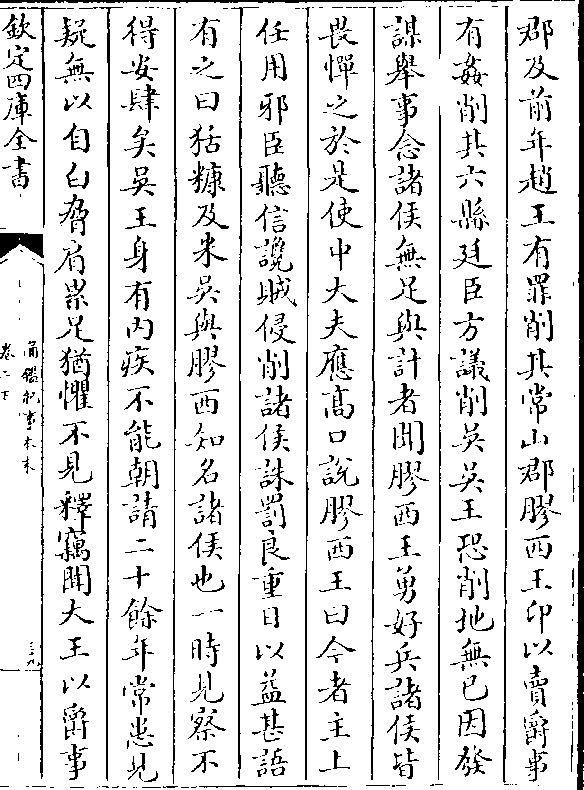 郡及前年趙王有罪削其常山郡膠西王卬以賣爵事
有姦削其六縣廷臣方議削吳吳王恐削地無已因發
謀舉事念諸侯無足與計者聞膠西王勇好兵諸侯皆
畏憚之於是使中大夫應髙口說膠西王曰今者主上
任用邪臣聽信讒賊侵削諸侯誅罰良重日以益甚語
有之曰狧糠及米吳與膠西知名諸侯也一時見察不
得安肆矣吳王身有内疾不能朝請二十餘年常患見
疑無以自白脅肩絫足猶懼不見釋竊聞大王以爵事
欽定四庫全書
通鑑紀事本末
卷二下
三九